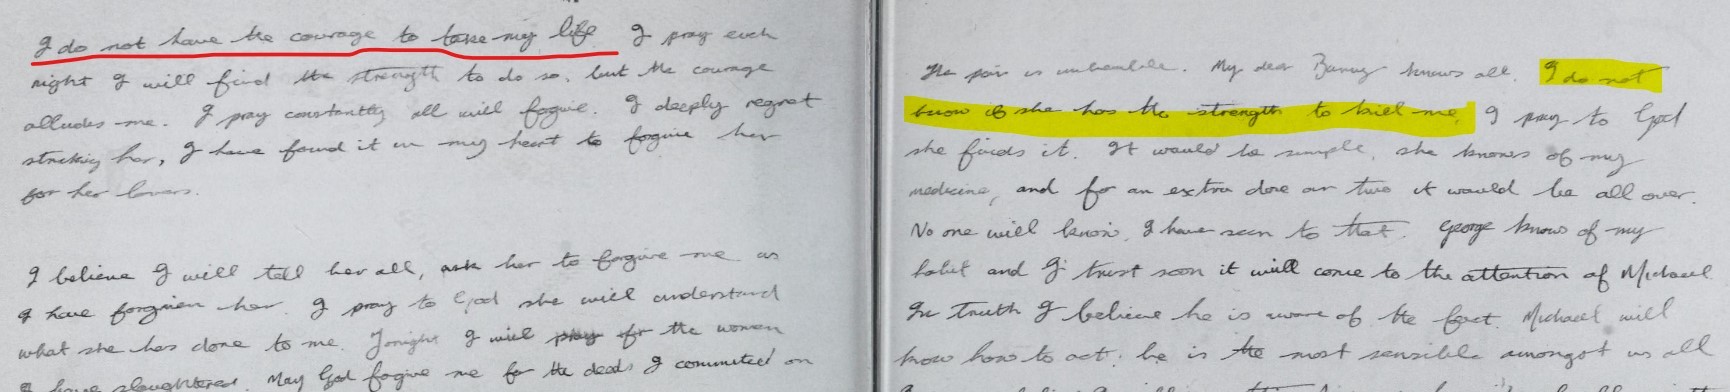 I do not have the courage to take my life I pray each
night I will find the strength to do so, but the courage
alludes me. I pray constantly all will forgive. I deeply regret
striking her, I have found it in my heart to forgive her
for her lovers.
I believe I will tell her all, ask her to forgive me as
I have forgiven her. I pray to God she will understand
what she has done to me. Tonight I will pray for the women
I have slaughtered. May God forgive me for the deeds I committed on
The pain is unbearable. My dear Bunny knows all. I do not
know if she has the strength to kill me. I pray to God
she finds it. It would be simple, she knows of my
medicine, and for an extra dose or two it would be all over.
No one will know, I have seen to that. George knows of my
habit and I trust soon it will come to the attention of Michael
In truth I believe he is aware of the fact. Michael will
know how to act; he is the most sensible amongst us all